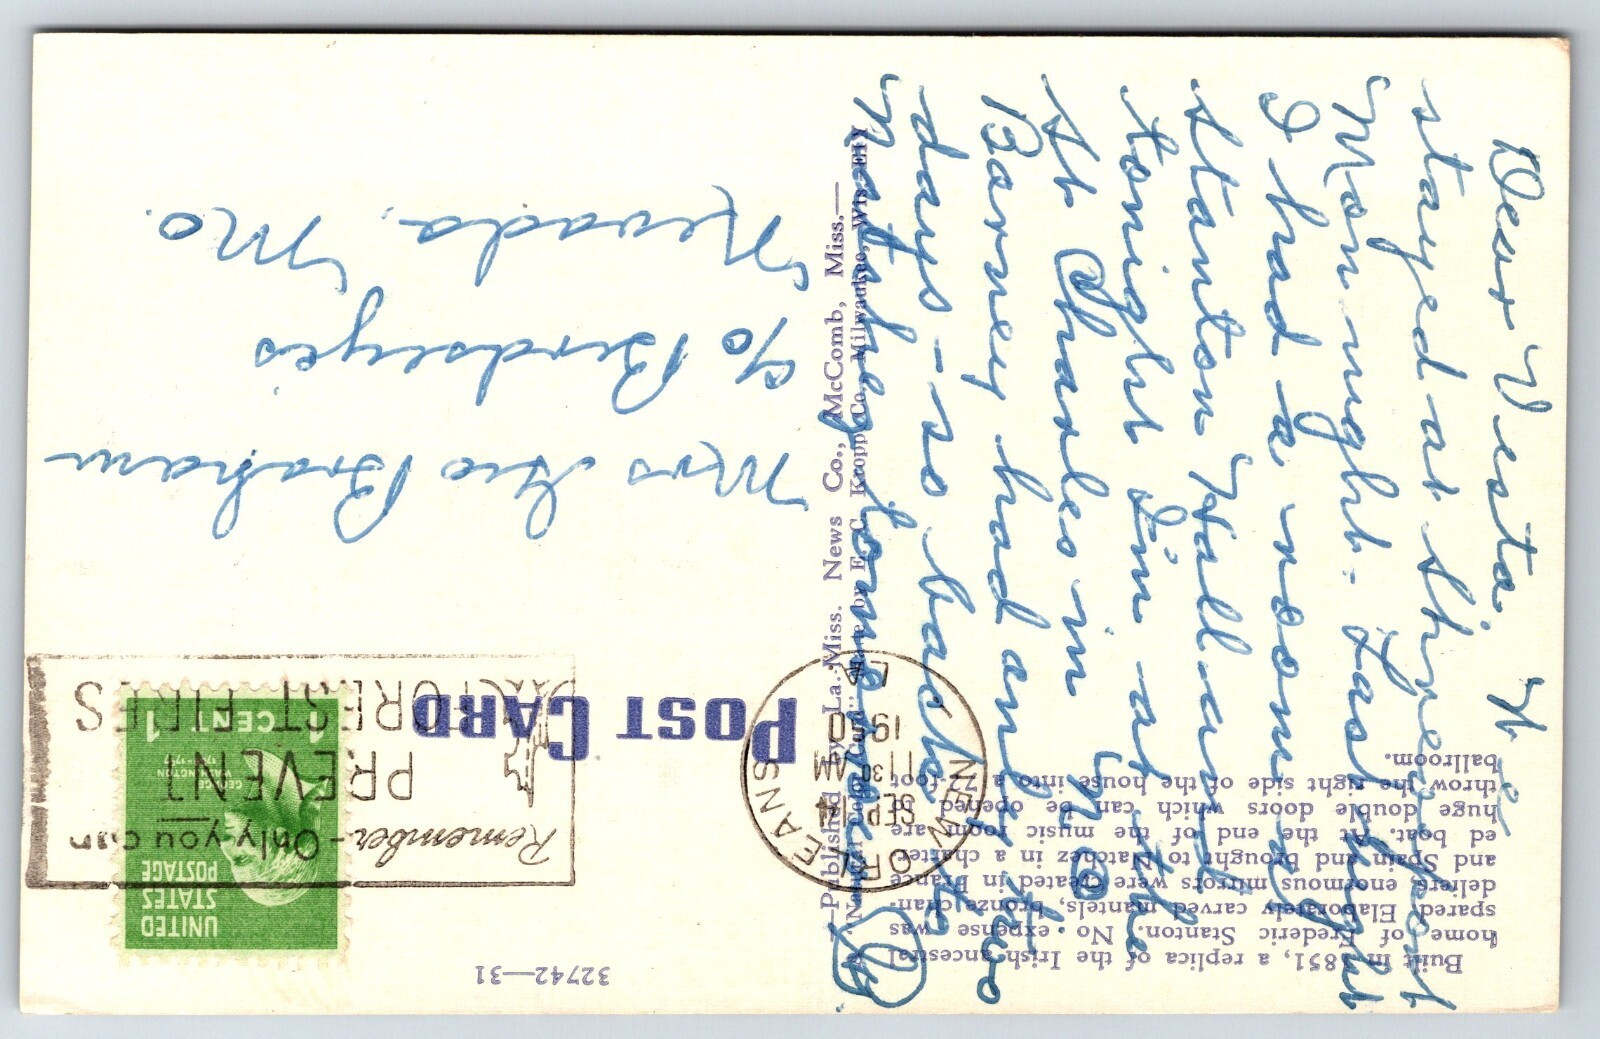 32742—31
Built in 1851, a replica of the Irish ancestral
home of Frederic Stanton. No expense was
spared. Elaborately carved mantels, bronze chan-
deliers, enormous mirrors were created in France
and Spain and brought to Natchez in a charter-
ed boat. At the end of the music room are
huge double doors which can be opened to
throw the right side of the house into a 72-foot
ballroom.
POST CARD
—Published by La.-Miss. News Co., McComb, Miss.—
UNITED
STATES
POSTAGE
GEORGE
WASHINGTON
1 CENT 1
NEW ORLEANS
SEP 14
11 30 AM
1950
LA
Remember - Only you can
PREVENT
FOREST FIRES
Dear Vesta:
stayed at Shreveport
Mon night. Last night
I had a room in
Stanton Hall and
tonight I'm at the
St Charles in N.O.
Barney had only two
days - so back to
Natchez
Mrs Geo Braham
c/o Birdseyes
Nevada, Mo.